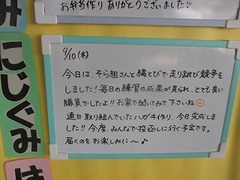 お弁当作りありがとうございました!!
み
こじぐみ
は
9/10(木)
今日は、そら組さんと縄とびで走り跳び競争を
しました!毎日の練習の成果が見られ、とても良い
勝負でしたよ!!お家で聞いてみて下さいね
連日取り組んでいたハガキ作り、今日完成しま
した!!今度、みんなで投函しに行く予定です。
届くのをお楽しみに〜♪